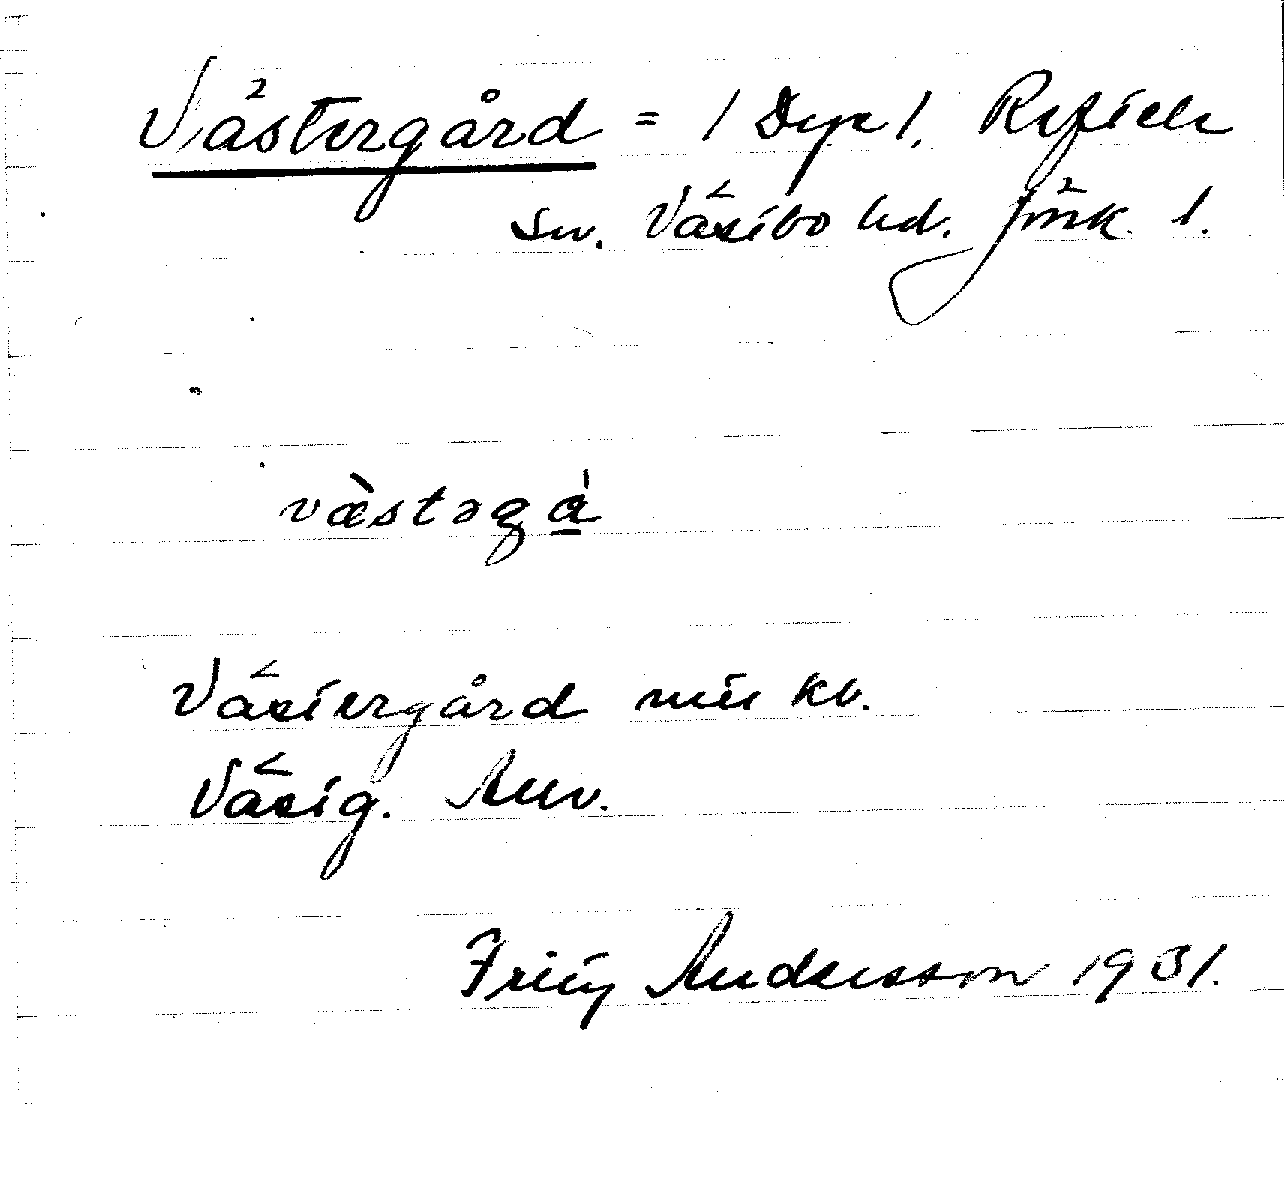 Västergård = 1 Dype 1. Reftele
sn. Västbo hd. Jönk. l.
væ̀stəgá
Västergård min kb.
Västg. Anv.
Frity Andersson 1931.